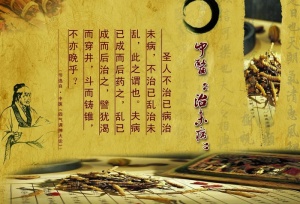 中醫“治未病”
圣人不治已病治
未病，不治已乱治未
乱，此之谓也。夫病
已成而后药之，乱已
成而后治之，譬犹渴
而穿井，斗而铸锥，
不亦晚乎？